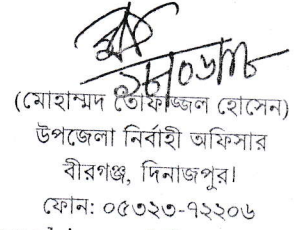 (মোহাম্মদ তোফাজ্জল হোসেন)
উপজেলা নির্বাহী অফিসার
বীরগঞ্জ, দিনাজপুর।
ফোন: ০৫৩২৩-৭২২০৬